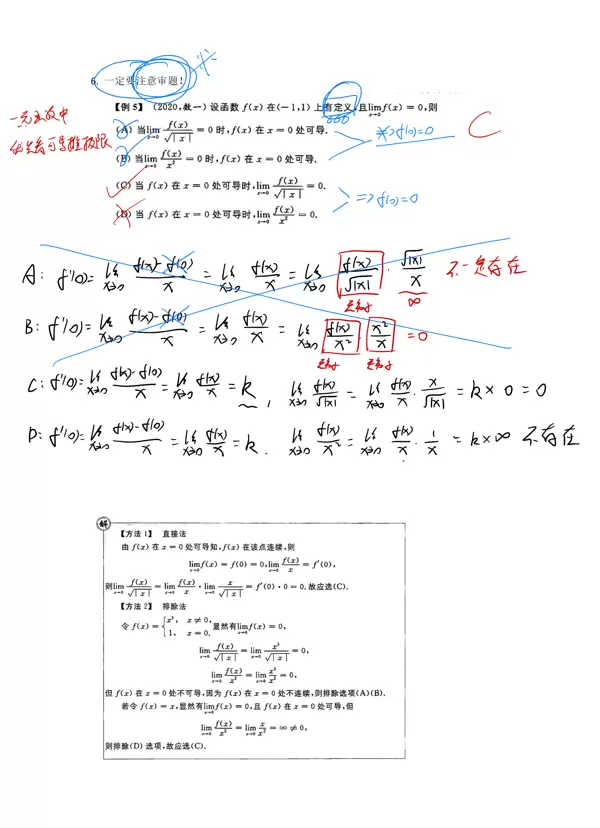 6. 一定要注意审题!
【例 5】 (2020,数一) 设函数 f(x) 在(-1,1) 上有定义,且lim_{x→0} f(x) = 0,则
(A) 当lim_{x→0} f(x)/√|x| = 0 时, f(x) 在 x = 0 处可导.
(B) 当lim_{x→0} f(x)/x² = 0 时, f(x) 在 x = 0 处可导.
⇏ f(0)=0
C
(C) 当 f(x) 在 x = 0 处可导时,lim_{x→0} f(x)/√|x| = 0.
(D) 当 f(x) 在 x = 0 处可导时,lim_{x→0} f(x)/x² = 0.
=> f(0)=0
A: f'(0)= lim_{x→0} (f(x)-f(0))/x = lim_{x→0} f(x)/x = lim_{x→0} f(x)/√|x| · √|x|/x 不一定存在
∞
B: f'(0)= lim_{x→0} (f(x)-f(0))/x = lim_{x→0} f(x)/x = lim_{x→0} f(x)/x² · x²/x =0
C: f'(0)= lim_{x→0} (f(x)-f(0))/x = lim_{x→0} f(x)/x = k, lim_{x→0} f(x)/√|x| = lim_{x→0} f(x)/x · x/√|x| = k×0 = 0
D: f'(0)= lim_{x→0} (f(x)-f(0))/x = lim_{x→0} f(x)/x = k. lim_{x→0} f(x)/x² = lim_{x→0} f(x)/x · 1/x = k×∞ 不存在
解
【方法 1】 直接法
由 f(x) 在 x = 0 处可导知, f(x) 在该点连续,则
lim_{x→0} f(x) = f(0) = 0, lim_{x→0} f(x)/x = f'(0),
则lim_{x→0} f(x)/√|x| = lim_{x→0} f(x)/x · lim_{x→0} x/√|x| = f'(0) · 0 = 0. 故应选(C).
【方法 2】 排除法
令 f(x) = { x³, x ≠ 0, 1, x = 0. 显然有lim_{x→0} f(x) = 0,
lim_{x→0} f(x)/√|x| = lim_{x→0} x³/√|x| = 0,
lim_{x→0} f(x)/x² = lim_{x→0} x³/x² = 0,
但 f(x) 在 x = 0 处不可导,因为 f(x) 在 x = 0 处不连续,则排除选项(A)(B).
若令 f(x) = x,显然有lim_{x→0} f(x) = 0,且 f(x) 在 x = 0 处可导,但
lim_{x→0} f(x)/x² = lim_{x→0} x/x² = ∞ ≠ 0,
则排除(D) 选项,故应选(C).